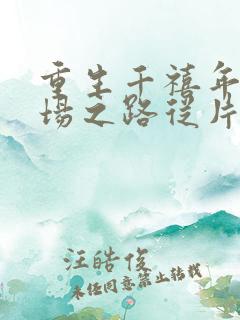 重生千禧年
场之路从片
汪皓俊
未经同意禁止转载